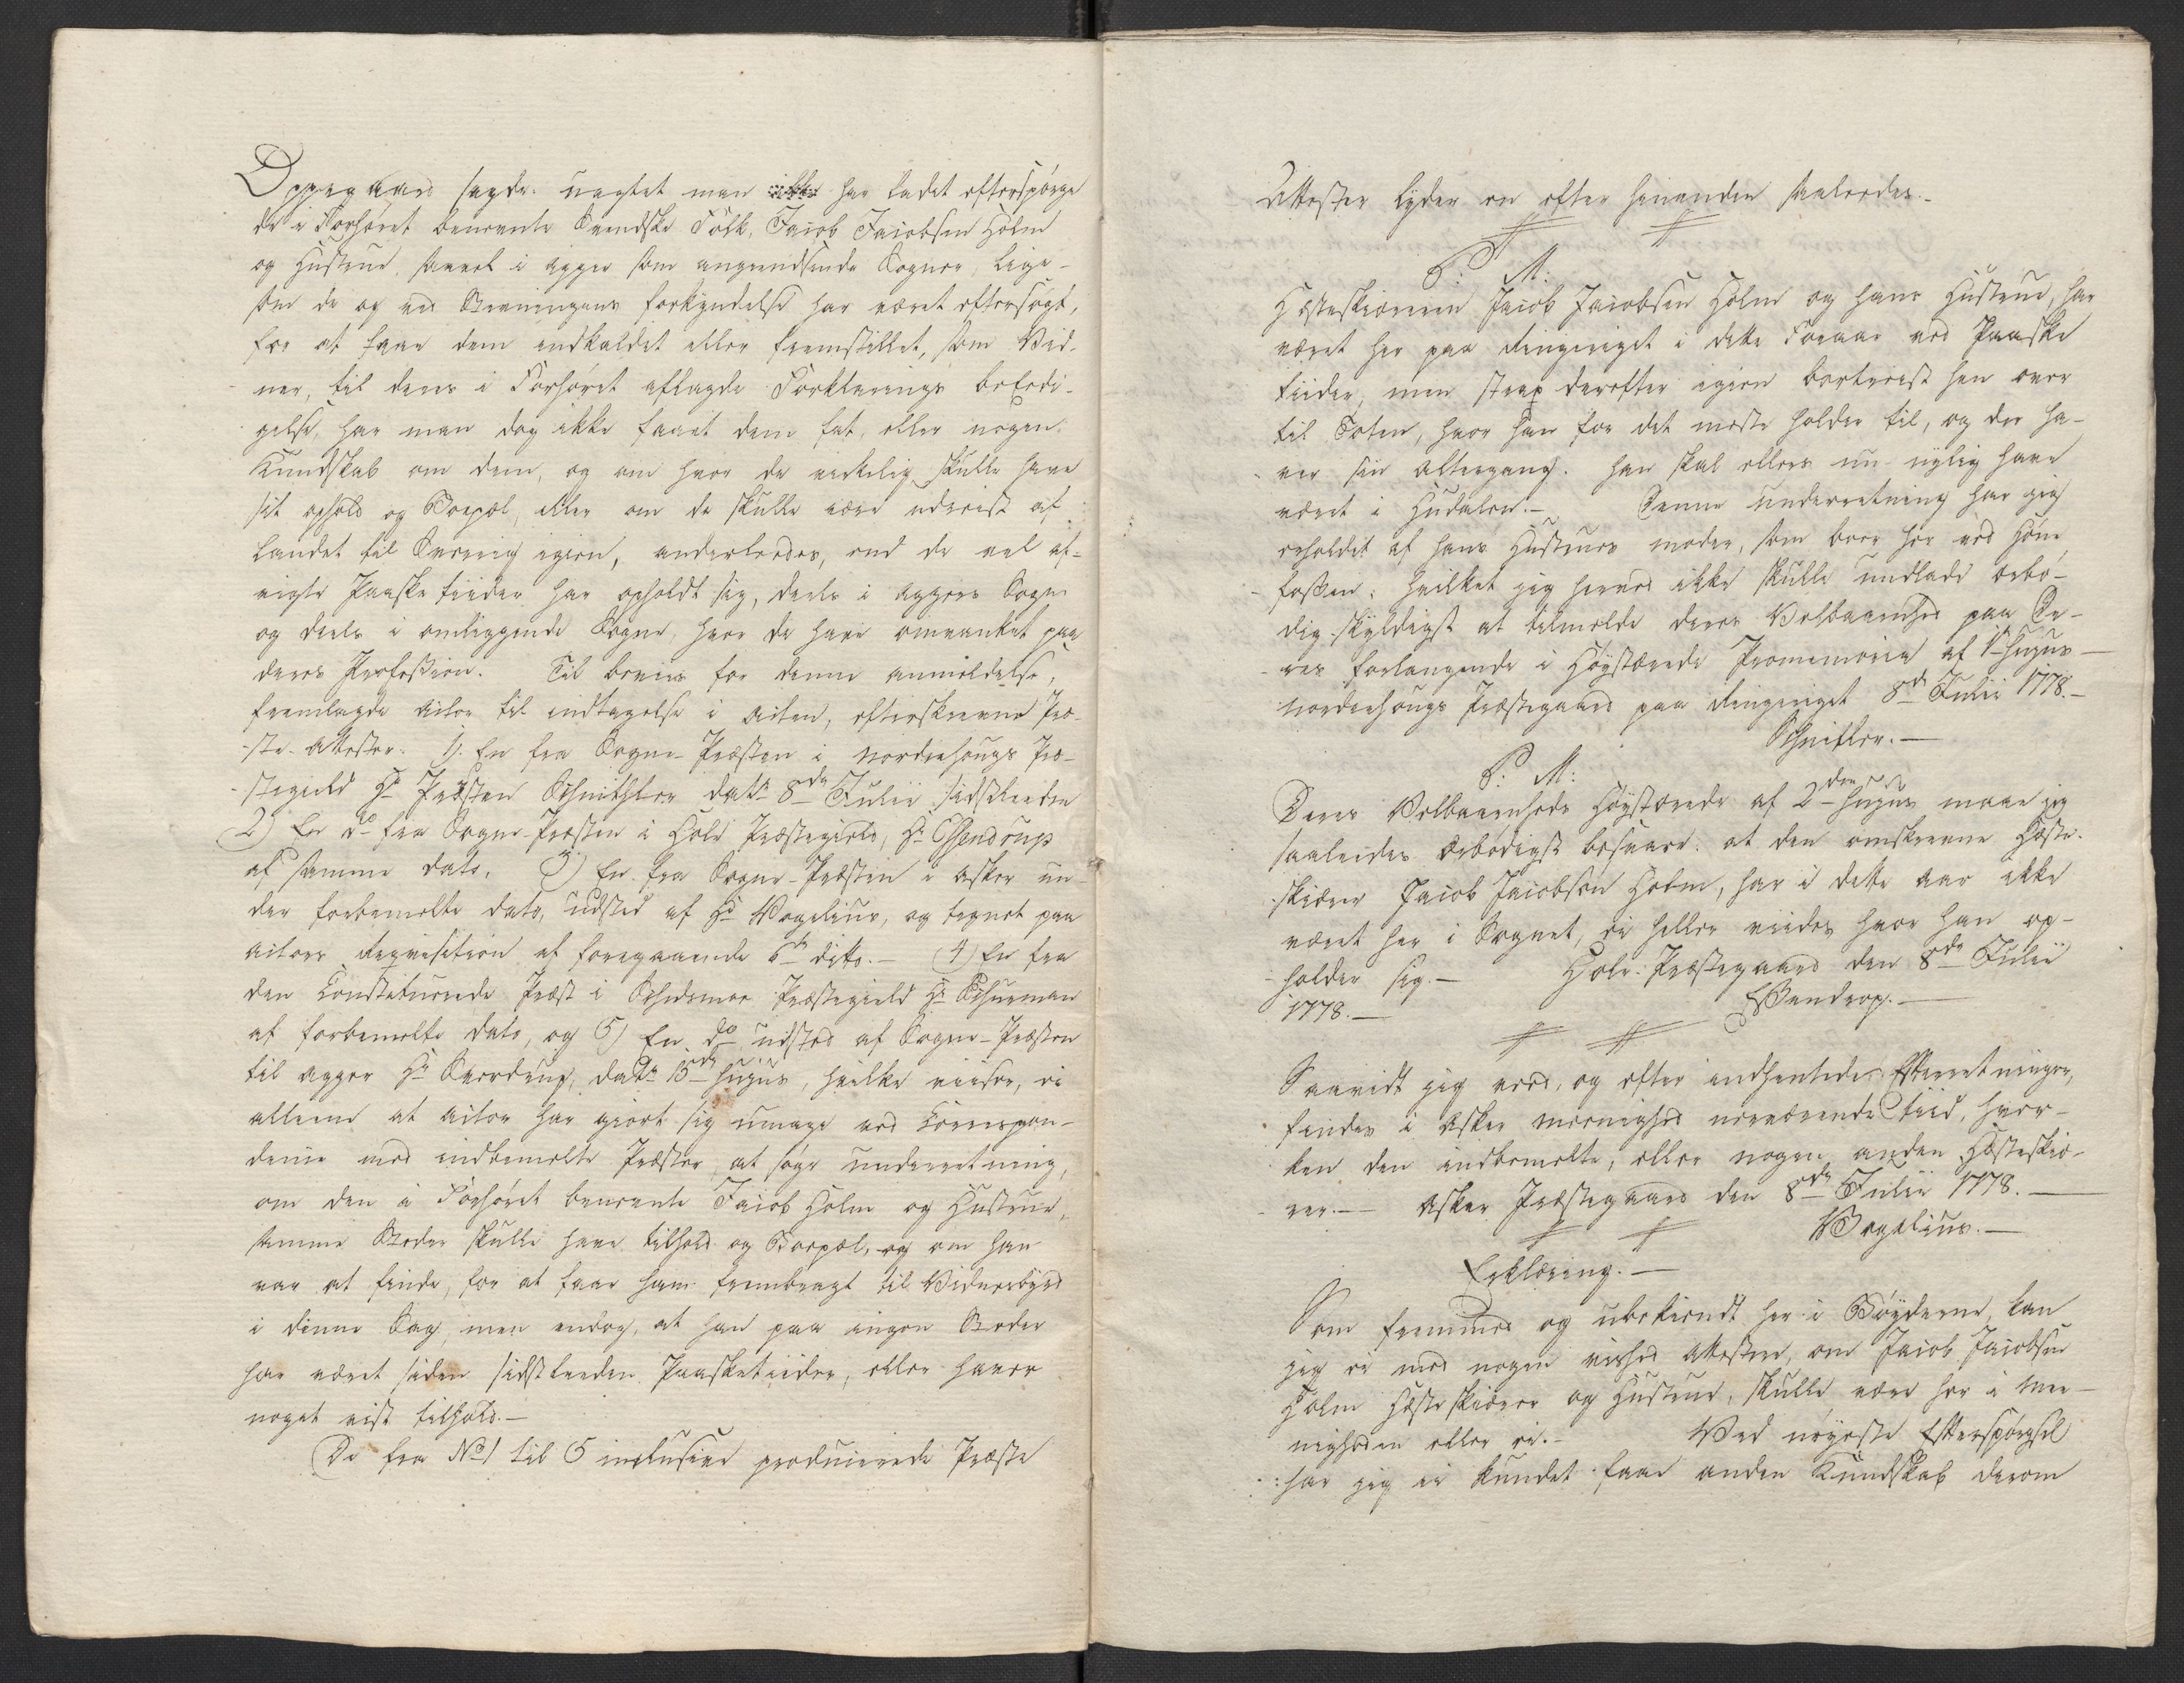 Oppegaard sagde: uagtet man har ladet efterspörge
de i Forhöret benevnte Svendske Folk, Jacob Jacobsen Holm
og Hustrue, saavel i Agger som angrendsende Sogner, lige-
som de og ved Stevningens forkyndelse har været eftersögt,
for at faae dem indkaldet eller fremstillet, som Vid-
ner, til deres i Forhöret aflagde Forklarings beEedi-
gelse, har man dog ikke faaet dem fat, eller nogen
Kundskab om dem, og om hvor de virkelig skulle have
sit ophold og Boepæl, eller om de skulle være udreist af
Landet til Sverrig igien, anderleedes, end de vel af-
vigte Paaske tiider har opholdt sig, deels i Aggers Sogn
og deels i omliggende Sogne, hvor de have omvanket paa
deres Profession. Til beviis for denne anmeldelse,
fremlagde Actor til indtagelse i Acten, efterskrevne Præ-
ste-Attester: 1). En fra Sogne-Præsten i Nordrehougs Præ-
stegield Hr Præsten Schnitler dat: 8de Julii sidstleeden
2) En do fra Sogne-Præsten i Hole Præstegield, Hr Essendrup
af samme dato, 3) En fra Sogne-Præsten i Asker un-
der forbemelte dato, udsted af Hr Vogelius, og tegnet paa
Actors Reqvisition af foregaaende 6te ditto.- 4) En fra
den Constituerede Præst i Schedsmoe Præstegield Hr Schurman
af forbemelte dato, og 5) En do udsted af Sogne-Præsten
til Agger Hr Sverdrup, dat: 15de hujus, hvilke viiser, ei
alleene at Actor har giort sig umage ved Correspon-
dence med indbemelte Præster, at søge underretning,
om den i Forhöret benevnte Jacob Holm og Hustrue,
samme Steder skulle have tilhold og Boepæl, og om han
var at finde, for at faae ham frembragt til Vidnesbyrd
i denne Sag, men endog, at han paa ingen Steder
har været siden sidstleeden Paasketiider, eller haver
noget vist tilhold.-
De fra No 1 til 5 inclusive producerede Præste
Attester lyder en efter hinanden saaleedes.-
P: M:
Hesteskiæreren Jacob Jacobsen Holm og hans Hustrue, har
været her paa Ringeriget i dette Foraar ved Paaske
tiider, men strax derefter igien bortreist hen over
til Toten, hvor han for det meste holder til, og der ha-
ver sin Altergang. han skal ellers nu nylig have
været i Hudalen.- Denne underretning har jeg
erholdet af hans Hustrues moder, som boer her ved Höne
fossen: hvilket jeg herved ikke skulle undlade ærbö-
dig-skyldigst at tilmelde Deres Velbaarenhed paa De-
res forlangende i Höystærede Promemoria af 1te hujus-
Norderhougs Præstegaard paa Ringeriget 8de Julii 1778.-
Schnitler.-
P: M:
Deres Velbaarenheds Höystærede af 2den hujus maae jeg
saaleedes ærbödigst besvare: at den omskrevne Heste-
skiærer Jacob Jacobsen Holm, har i dette aar ikke
været her i Sognet, ei heller viides hvor han op-
holder sig.- Hole Præstegaard den 8de Julii
1778.- Essendrop.-
Saavidt jeg veed, og efter indhentede Efterretninger,
findes i Asker meenighed nerværende tiid, hver-
ken den indbemelte, eller nogen anden Hesteskiæ-
rer.- Asker Præstegaard den 8de Julii 1778.-
Vogelius.-
Erklæring.-
Som fremmed og ubekiendt her i Böyderne, kan
jeg ei med nogen vished attestere, om Jacob Jacobsen
Holm Hesteskiærer og Hustrue, skulle være her i Mee-
nigheden eller ei.- Ved nöyeste Efterspörgsel
har jeg ei kundet faae anden Kundskab derom